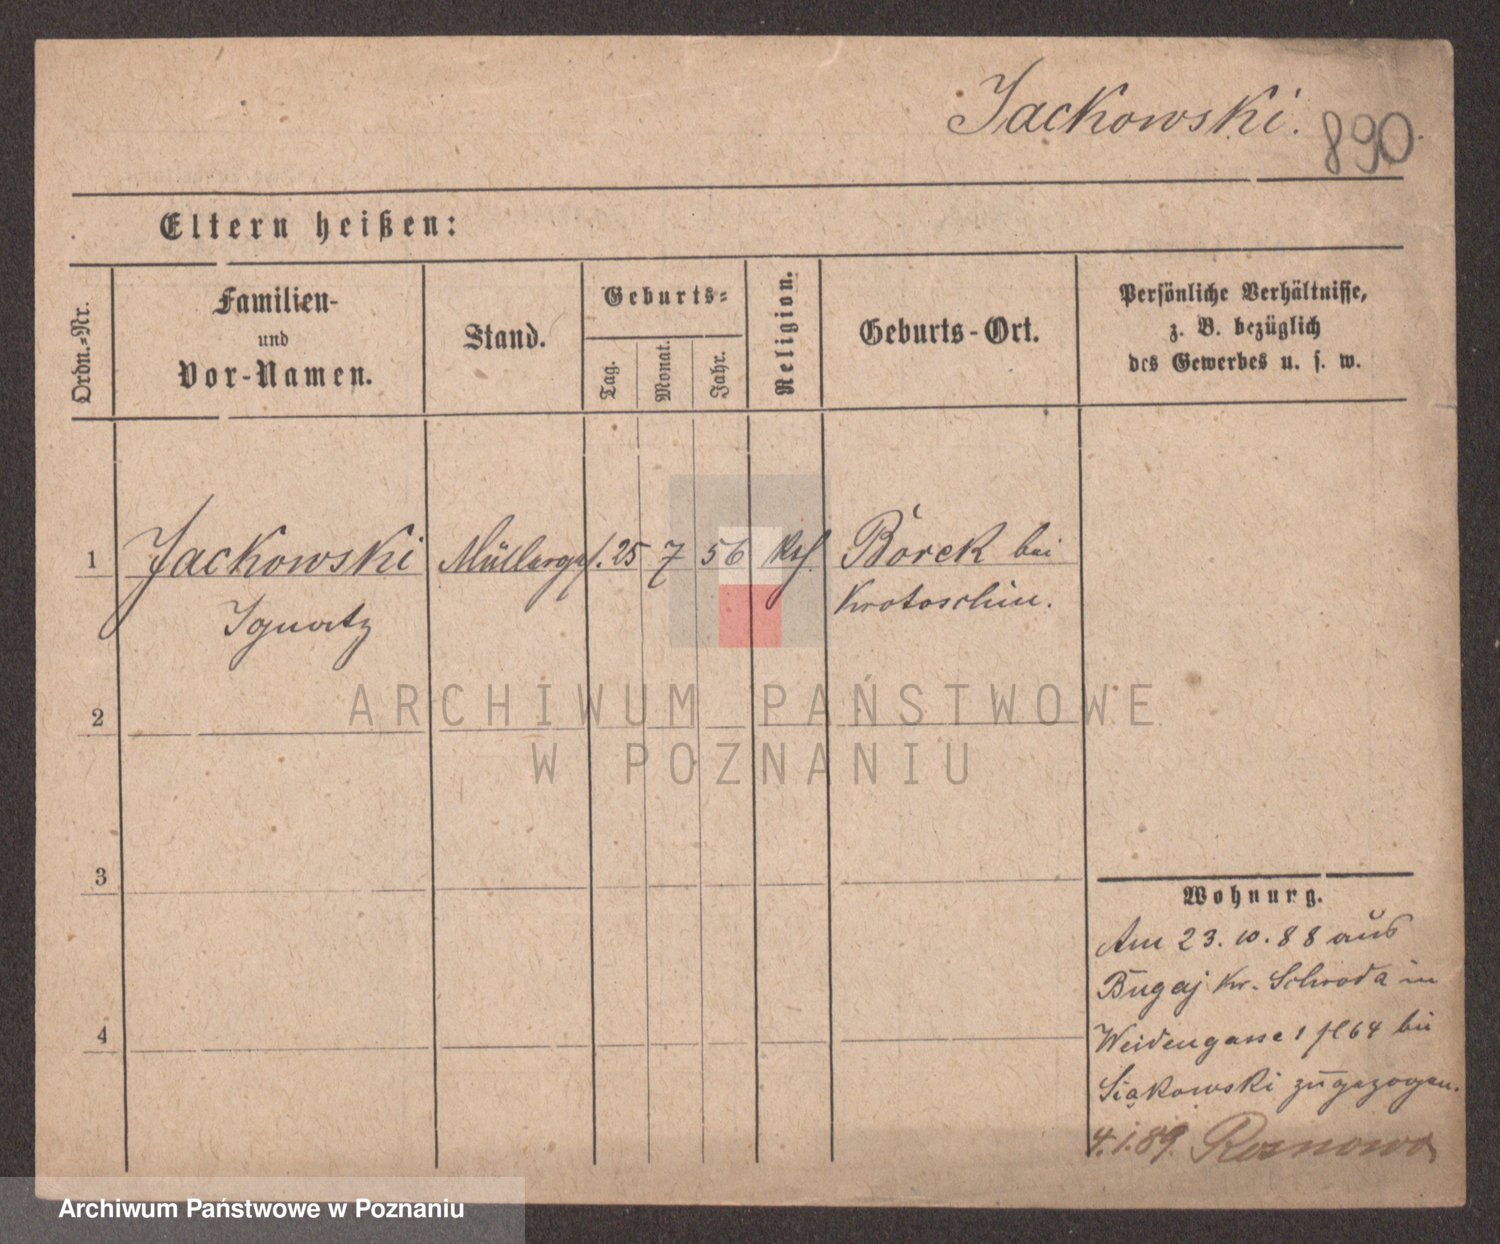 Jackowski. 890.
Eltern heißen:
Ordn.-Nr.
Familien-
und
Vor-Namen.
Stand.
Geburts-
Tag.
Monat.
Jahr.
Religion.
Geburts-Ort.
Persönliche Verhältnisse,
z. B. bezüglich
des Gewerbes u. s. w.
1 Jackowski Müllerges. 25 7 56 Borek bei
Ignatz Krotoschin.
2
3
4
Wohnung.
Am 23. 10. 88 aus
Bugaj Kr. Schroda in
Weidengasse 1 64 bei
Siąkowski zugezogen.
4.1.89. Rosnowo
ARCHIWUM PAŃSTWOWE
W POZNANIU
Archiwum Państwowe w Poznaniu